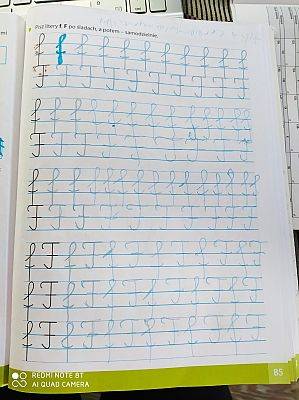 Pisz litery f, F po śladach, a potem – samodzielnie.
f f f f f f f f f f
F F F F F F F F
f f f f f f f f f f f f
F F F F F F F F F
f f f f f f f f f f f f f
F F F F F F F F F
f F f F f F f F f F f F
f F f F f F f F f F f F
f F f F f F f F f F f F
85
REDMI NOTE 8T
AI QUAD CAMERA